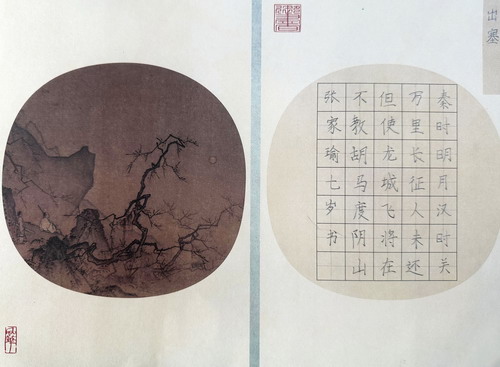 出塞
秦时明月汉时关
万里长征人未还
但使龙城飞将在
不教胡马度阴山
张家瑜七岁书